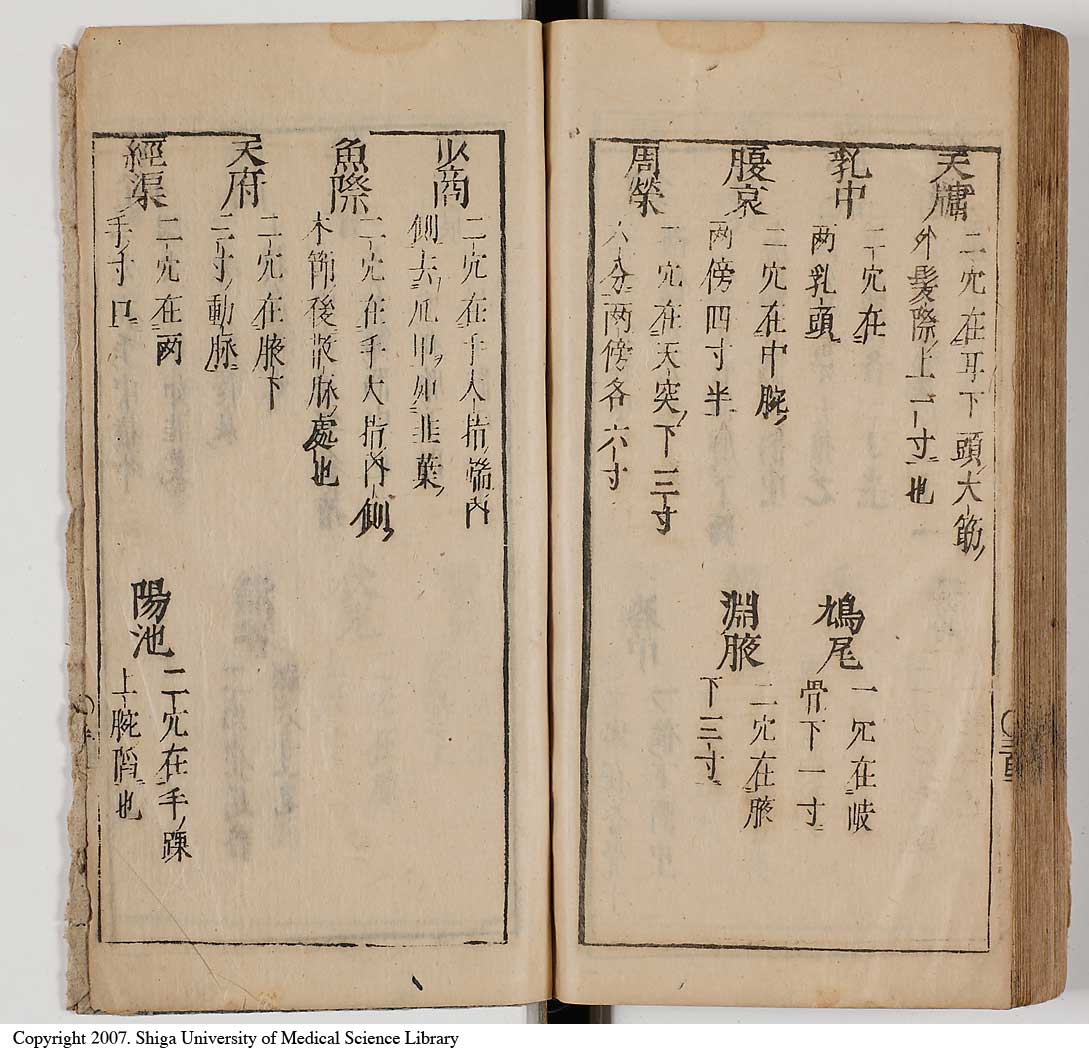 天牖
二穴在耳下頭大筋
外髮際上一寸也
乳中
二穴在
两乳頭
鳩尾
一穴在岐
骨下一寸
腹哀
二穴在中脘
两傍四寸半
淵腋
二穴在腋
下三寸
周榮
二穴在天突下三寸
六分两傍各六寸
少商
二穴在手大指端內
側去爪甲如韭葉
魚際
二穴在手大指內側
本節後散脉處也
天府
二穴在腋下
三寸動脉
經渠
二穴在两
手寸口
陽池
二穴在手踝
上腕陷也
Copyright 2007. Shiga University of Medical Science Library